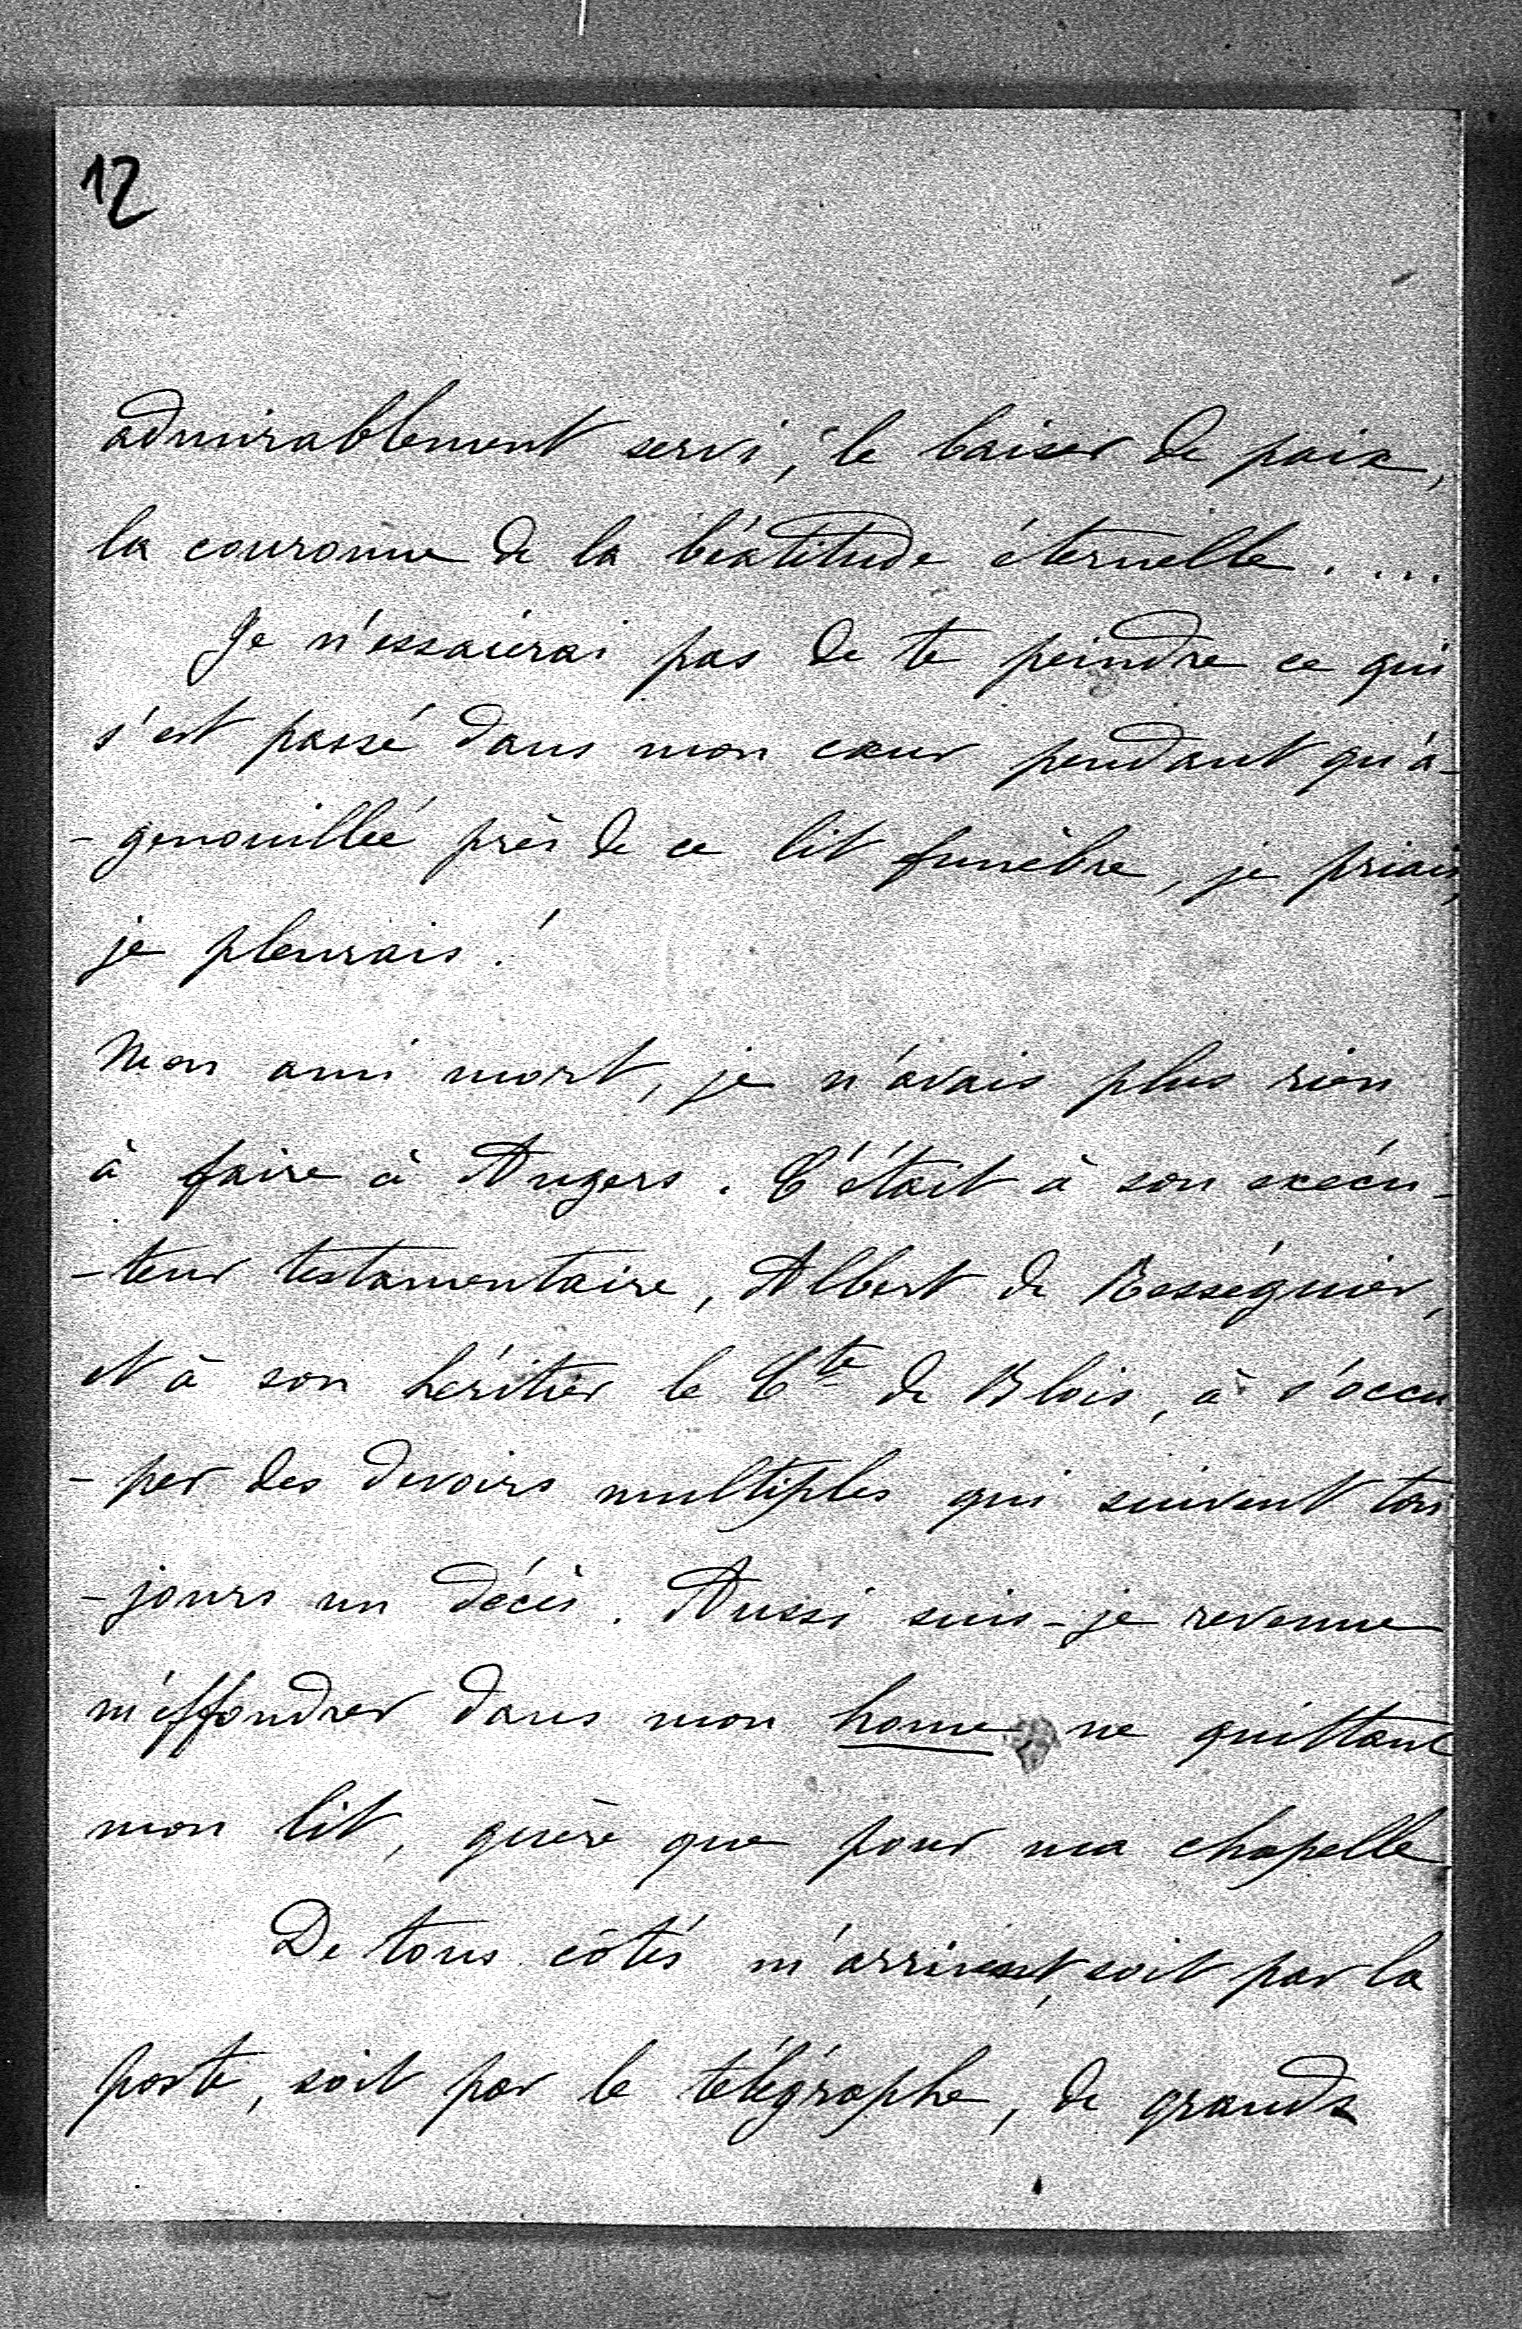 12
admirablement servi, le baiser de paix,
la couronne de la béatitude éternelle....
Je n'essaierai pas de te peindre ce qui
s'est passé dans mon cœur pendant qu'a-
-genouillée près de ce lit funèbre, je priais,
je pleurais !
Mon ami mort, je n'avais plus rien
à faire à Angers. C'était à son exécu-
-teur testamentaire, Albert de Rességuier,
et à son héritier le Cte de Blois, à s'occu
-per des devoirs multiples qui suivent tou
-jours un décès. Aussi suis-je revenue
m'effondrer dans mon home, ne quittant
mon lit, guère que pour ma chapelle.
De tous côtés m'arrivent, soit par la
poste, soit par le télégraphe, de grands